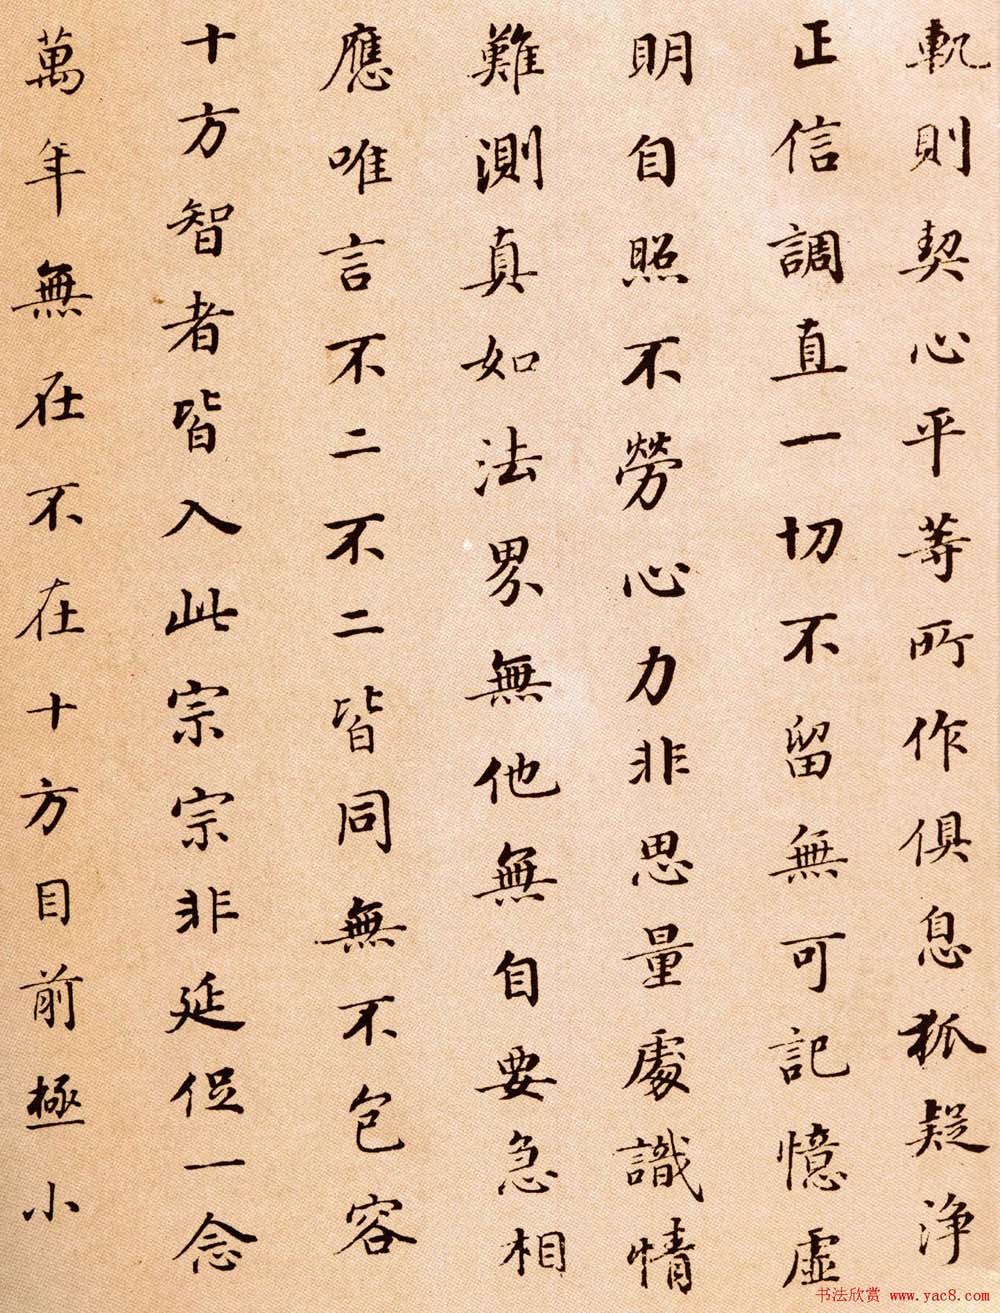 軌則契心平等所作俱息狐疑淨
正信調直一切不留無可記憶虛
明自照不勞心力非思量處識情
難測真如法界無他無自要急相
應唯言不二不二皆同無不包容
十方智者皆入此宗宗非延促一念
萬年無在不在十方目前極小
书法欣赏 www.yac8.com